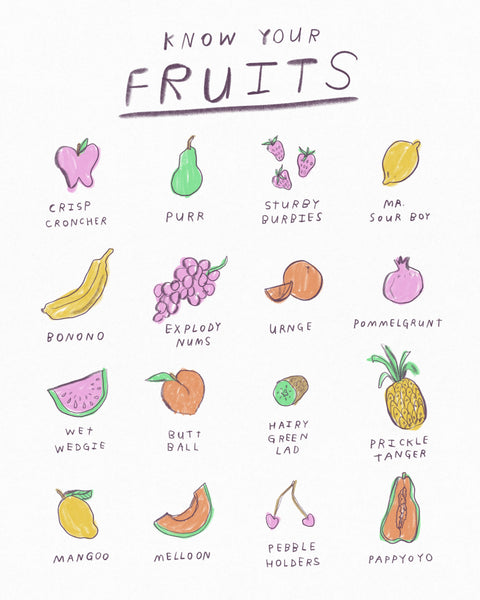 KNOW YOUR
FRUITS
CRISP
CRONCHER
PURR
STURBY
BURBIES
MR.
SOUR BOY
BONONO
EXPLODY
NUMS
URNGE
POMMELGRUNT
WET
WEDGIE
BUTT
BALL
HAIRY
GREEN
LAD
PRICKLE
TANGER
MANGOO
MELLOON
PEBBLE
HOLDERS
PAPPYOYO